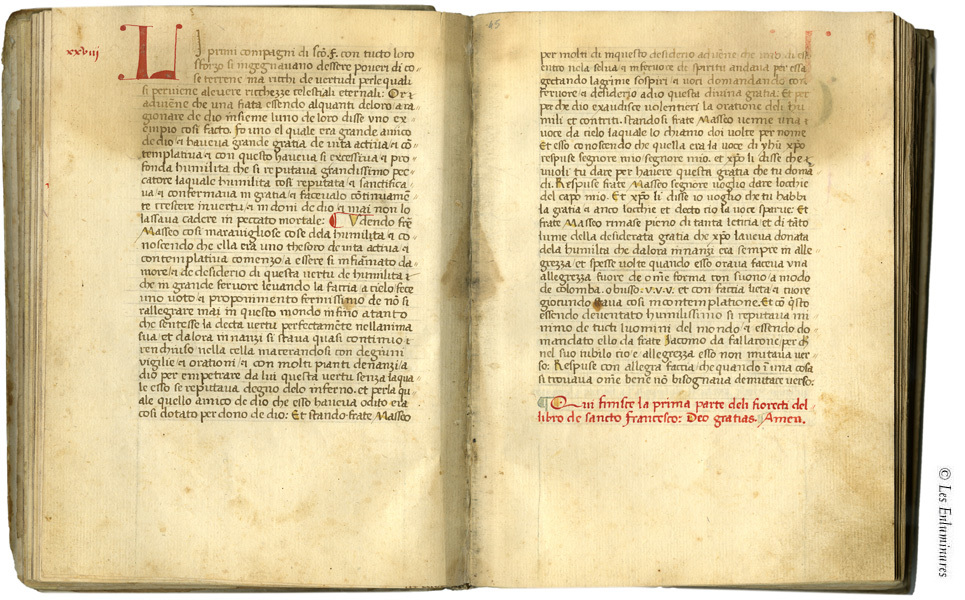 xxviij
LI primi compagni di sco. F. con tucto loro
sforzo si ingegnavano dessere poveri di co-
se terrene ma ricchi de vertudi per le quali
si perviene a le vere ricchezze celestiali eternali: Or
advenne che una fiata essendo alquanti de loro a ra-
gionare de dio insieme luno de loro disse uno ex-
empio cosi facto. Fo uno el quale era grande amico
de dio & haveva grande gratia de vita activa & cō-
templativa & con questo haveva si excessiva & pro-
fonda humilita che si reputava grandissimo pec-
catore la quale humilita cosi reputata & sanctifica-
va & confermava in gratia & facevalo cōtinuamē-
te crescere in vertu & in doni de dio & mai non lo
lassava cadere in peccato mortale: Vdendo frē
Masseo cosi maravigliose cose de la humilita & co-
noscendo che ella era uno thesoro de vita activa &
contemplativa comenzo a essere si infiamato da-
more & de desiderio di questa vertu de humilita
che in grande fervore levando la faccia a cielo fece
uno voto & proponimento fermissimo de nō si
rallegrare mai in questo mondo infino a tanto
che sentesse la decta vertu perfectamēte nell anima
sua et da lora innanzi si stava quasi continuo
renchiuso nella cella macerandosi con degiuni
vigilie & orationi & con molti pianti denanzi a
dio per empetrare da lui questa vertu senza la qua-
le esso se reputava degno de lo inferno. et per la qu-
ale quello amico de dio che esso haveva odito era
cosi dotato per dono de dio: Et stando frate Masseo
45
per molti di in questo desiderio advēne che uno di es-
entro nela selva & in fervore di spiritu andava per essa
gectando lagrime sospiri & voci domandando con
fervore & desiderio a dio questa divina gratia. Et per
per che dio exaudisce volentieri la oratione deli hu-
mili et contriti. stando si frate Masseo venne una
voce da cielo la quale lo chiamo doi volte per nome
Et esso conoscendo che quella era la voce di yhū xpo
respuse segnore mio segnore mio. et xpo li disse che
vuoli tu dare per havere questa gratia che tu domā
di. Respuse frate Masseo segnore voglio dare locchie
del capo mio. Et xpo li disse io voglio che tu habbi
la gratia & anco locchie et decto cio la voce sparve: Et
frate Masseo rimase pieno di tanta letitia et di tāto
lume della desiderata gratia che xpo laveva donata
dela humilta che dalora innanzi era sempre in alle
grezza et spesse volte quando esso orava faceva una
allegrezza fuore de ome forma con suono a modo
de colomba. obtusso. v.v.v. et con faccia lieta & cuore
giocundo stava cosi in contemplatione. Et cō q̄sto
essendo deventato humilissimo si reputava mi
nimo de tucti luomini del mondo & essendo do
mandato ello da frate Jacomo da fallarone per ch
nel suo iubilo cio e allegrezza esso non mutava ver-
so: Respuse con allegra faccia che quando i una cosa
si trovava ome bene nō bisognava de mutare verso:
Qui finisce la prima parte deli fiorecti del
libro de sancto Francesco: Deo gratias. Amen.
© Les Enluminures